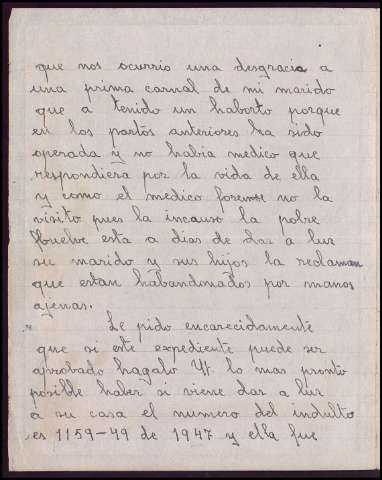 que nos ocurrio una desgracia a
una prima carnal de mi marido
que a tenido un haborto porque
en los partos anteriores ha sido
operada y no habia medico que
respondiera por la vida de ella
y como el medico forense no la
visito pues la incauso la pobre
Huelve esta a dias de dar a luz
su marido y sus hijos la reclaman
que estan habandonados por manos
ajenas.
Le pido encarecidamente
que si este expediente puede ser
aprobado hagalo Vt. lo mas pronto
posible haber si viene dar a luz
a su casa el numero del indulto
es 1159-49 de 1947 y ella fue